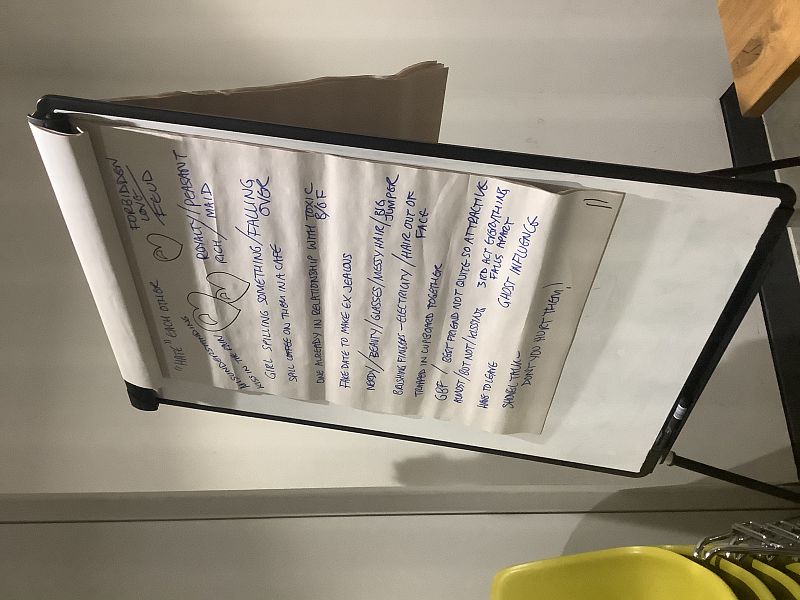 "HATE" EACH OTHER
FORBIDDEN
LOVE/
FEUD
MISUNDERSTANDING
KISS IN THE RAIN
ROYALTY/PEASANT
RICH/ MAID
GIRL SPILLING SOMETHING/FALLING
OVER
SPILL COFFEE ON THEM IN A CAFE
ONE ALREADY IN RELATIONSHIP WITH TOXIC
B/GF
FAKE DATE TO MAKE EX JEALOUS
NERDY/BEAUTY/GLASSES/MESSY HAIR/BIG
JUMPER
BRUSHING FINGERS - ELECTRICITY / HAIR OUT OF
FACE
TRAPPED IN CUPBOARD TOGETHER
GBF / BEST FRIEND NOT QUITE SO ATTRACTIVE
ALMOST/BUT NOT/KISSING 3RD ACT EVERYTHING
FALLS APART
HAVE TO LEAVE
GHOST INFLUENCE
SHOVEL TALK
DON'T YOU HURT THEM!